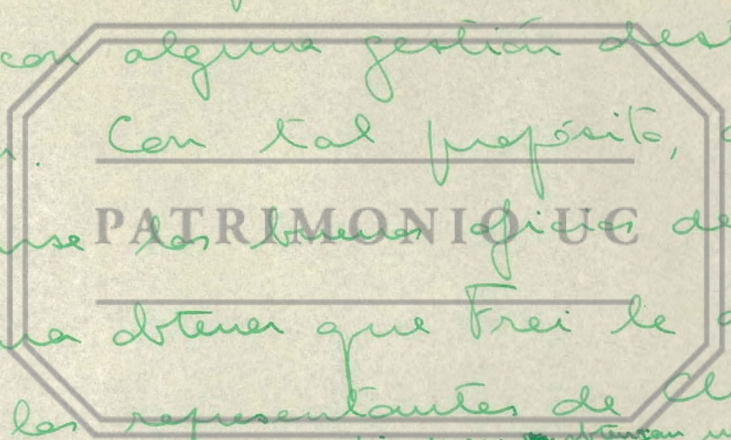 con alguna gestión dest
n. Con tal propósito,
PATRIMONIO UC
rse los buenos oficios de
ra obtener que Frei le
los representantes de